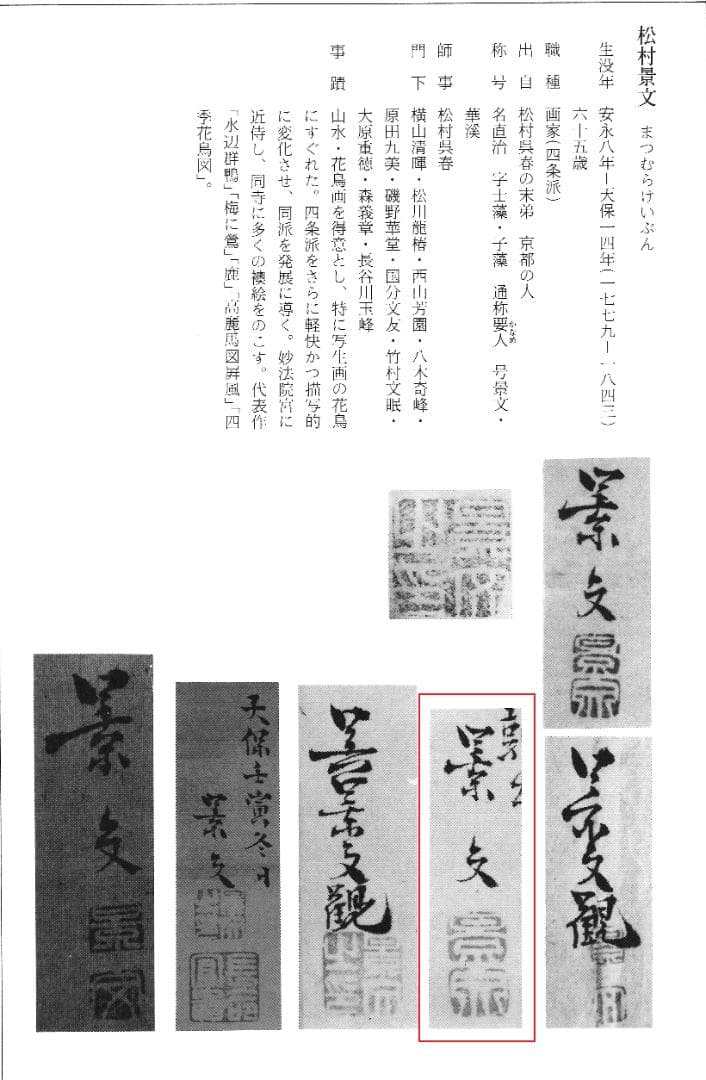 松村景文 まつむらけいぶん
生没年 安永八年ー天保一四年(一七七九ー一八四三)
六十五歳
職種 画家(四条派)
出自 松村呉春の末弟 京都の人
称号 名直治 字士藻・子藻 通称要人 号景文・
かなめ
華渓
師事 松村呉春
門下 横山清暉・松川龍椿・西山芳園・八木奇峰・
原田九美・磯野華堂・国分文友・竹村文眠・
大原重徳・森義章・長谷川玉峰
事蹟 山水・花鳥画を得意とし、特に写生画の花鳥
にすぐれた。四条派をさらに軽快かつ描写的
に変化させ、同派を発展に導く。妙法院宮に
近侍し、同寺に多くの襖絵をのこす。代表作
「水辺群鴨」「梅に鶯」「鹿」「高麗馬図屏風」「四
季花鳥図」。
景文
景文
景文観
景文
景文観
天保壬寅冬日
景文
景文